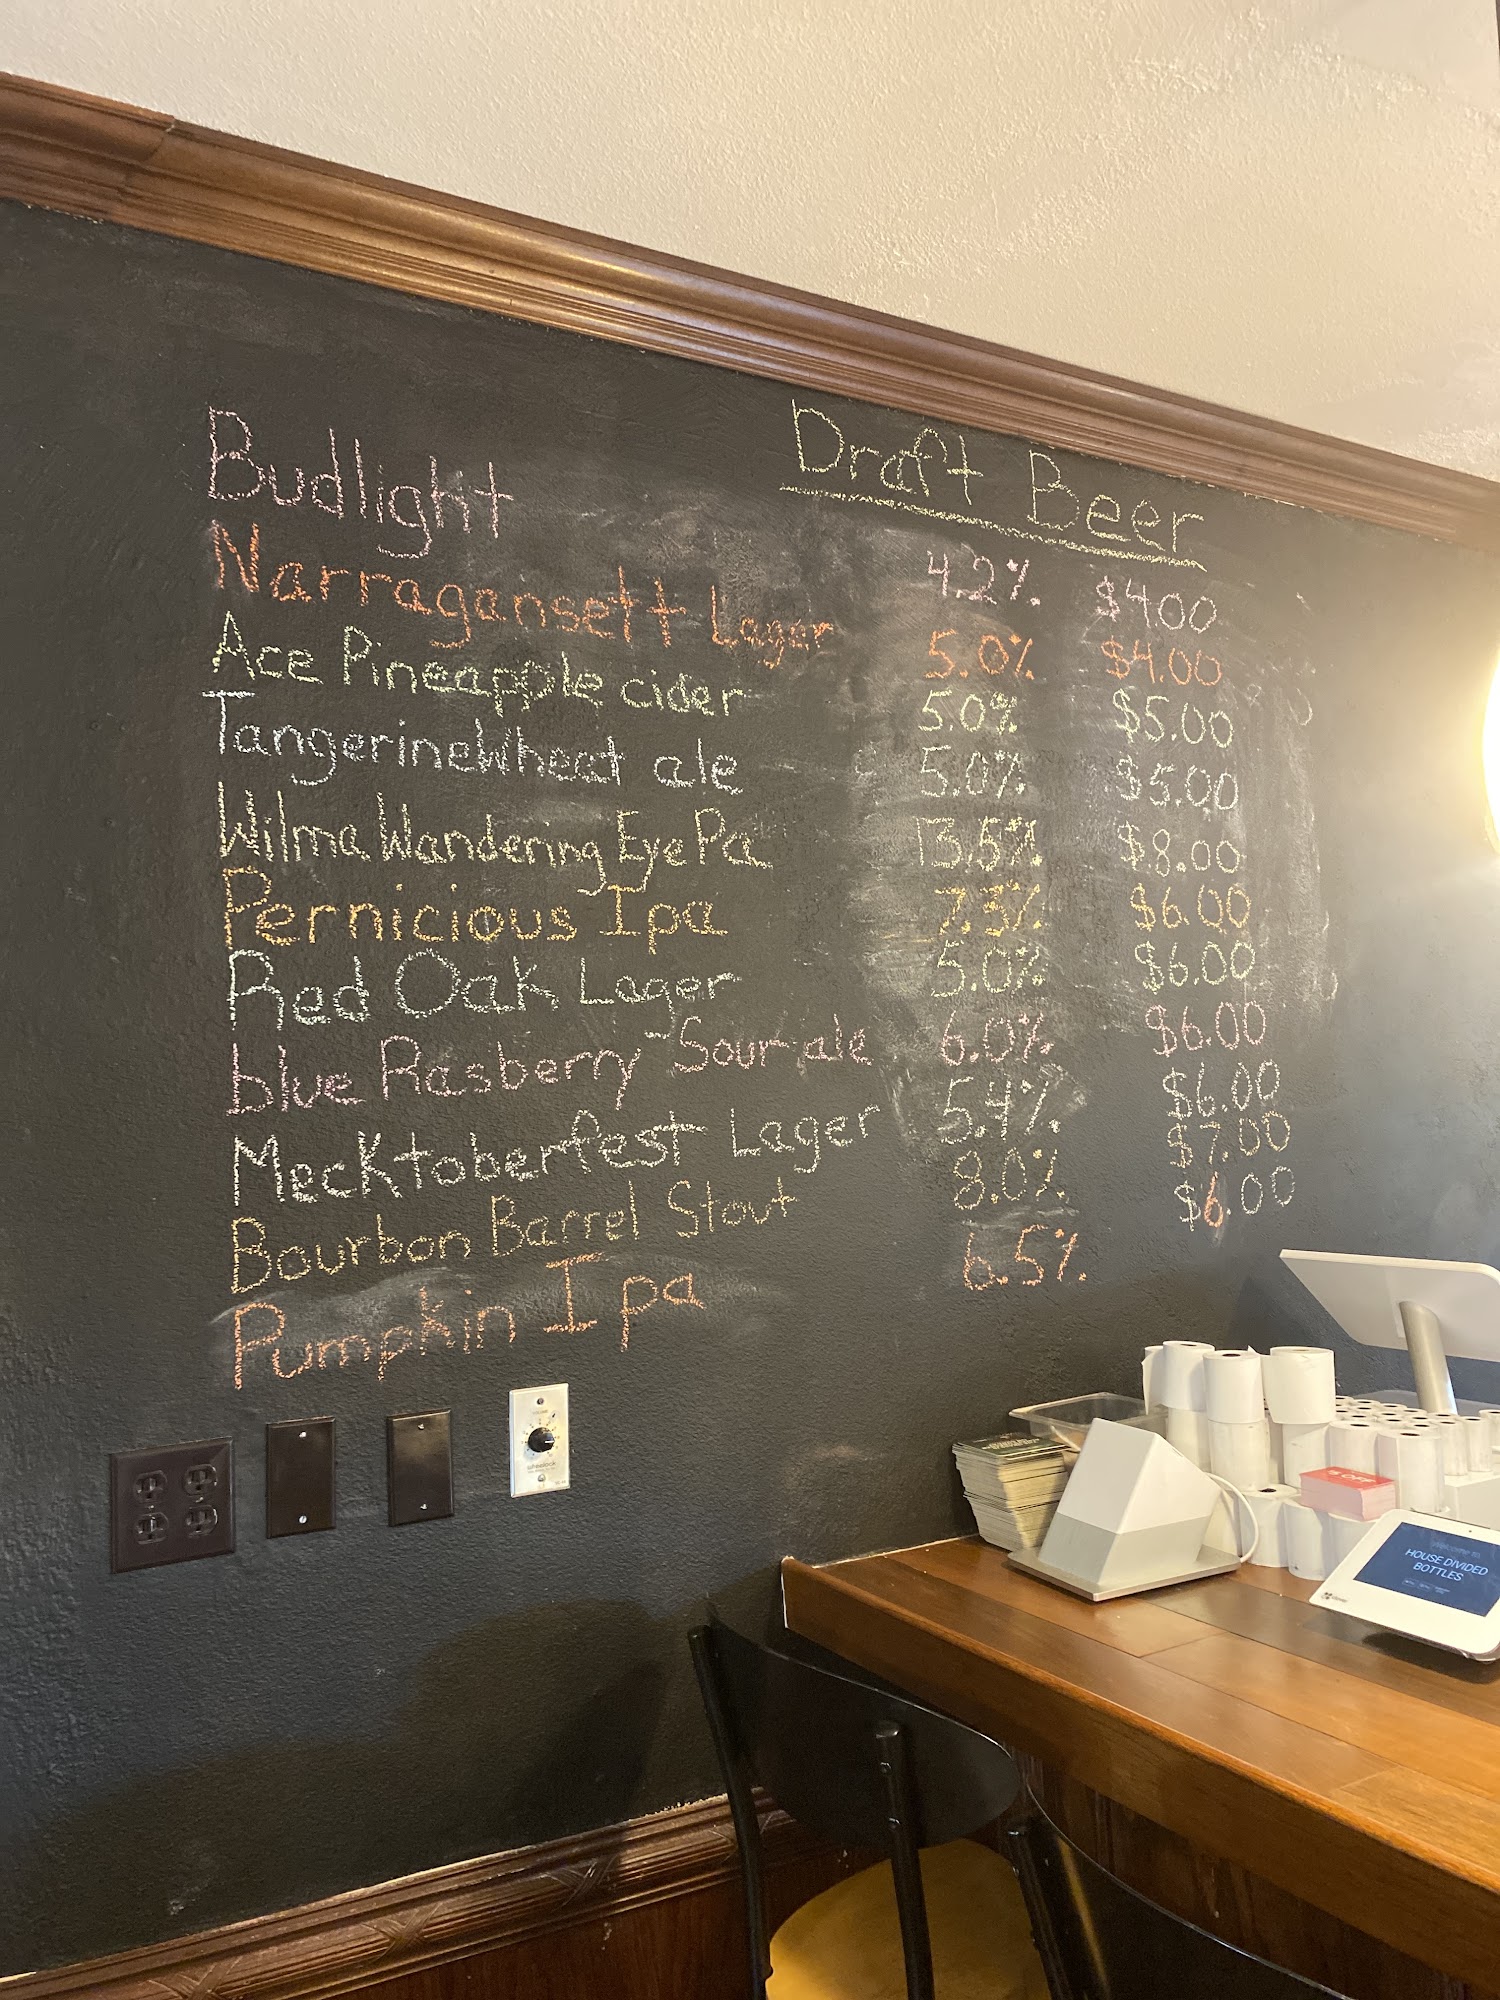 Draft Beer
Budlight 4.2% $4.00
Narragansett Lager 5.0% $4.00
Ace Pineapple cider 5.0% $5.00
Tangerine Wheat ale 5.0% $5.00
Wilma Wandering Eye Pa 13.5% $8.00
Pernicious Ipa 7.3% $6.00
Red Oak Lager 5.0% $6.00
blue Rasberry Sour ale 6.0% $6.00
Mecktoberfest Lager 5.4% $6.00
Bourbon Barrel Stout 8.0% $7.00
Pumpkin Ipa 6.5% $6.00
$5 OFF
Welcome to
HOUSE DIVIDED
BOTTLES